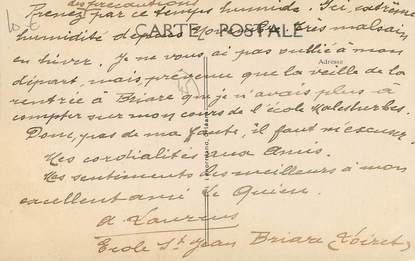 des précautions
Prenez par ce temps humide. Ici, extrême
CARTE POSTALE
humidité depuis très malsain
en hiver. Je ne vous ai pas oublié à mon
Adresse
départ, mais, prévenue que la veille de la
rentrée à Briare que je n'avais plus à
compter sur mon cours de l'école Malesherbes.
Donc, pas de ma faute, il faut m'excuser.
Mes cordialités aux Amis.
Mes sentiments des meilleurs à mon
excellent ami Le
A.
Ecole St Jean Briare (Loiret)